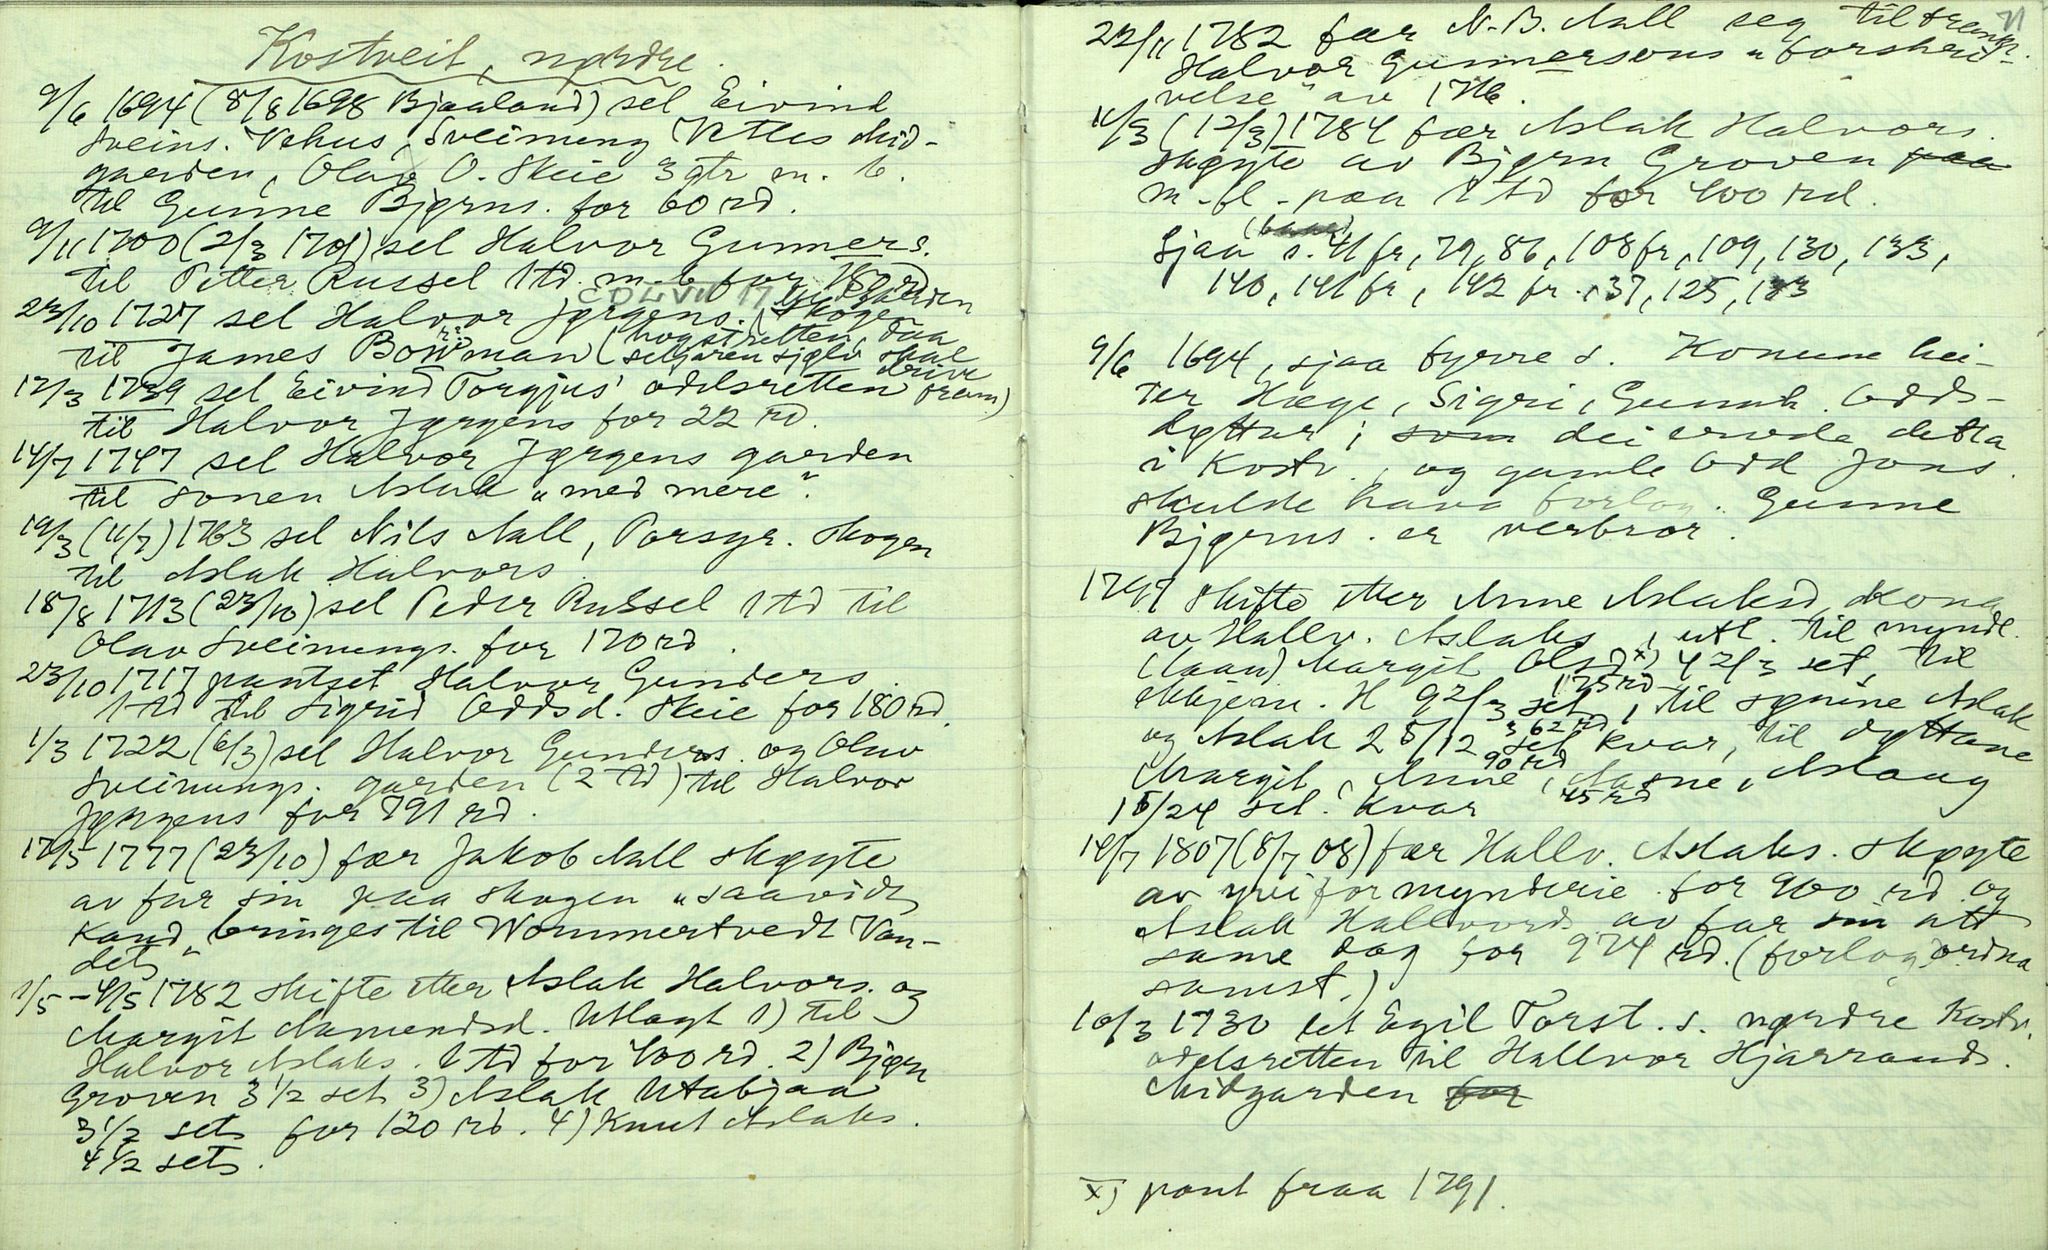 Kostveit, nørdre.
9/6 1694 (8/8 1698 Bjaaland) sel Eivind
Sveins. Vehus, Sveinung Vetles Mid-
garden, Olav O. Skeie 3 gtr m. b.
til Gunne Bjørns. for 60 rd.
9/11 1700 (2/3 1701) sel Halvor Gunners.
til Petter Russel 1 td. m. b for 180 rd
23/10 1727 sel Halvor Jørgens. skogen
til James Bowman (hogstretten, daa
seljaren sjølv skal drive fram)
12/3 1739 sel Eivind Torgjus' odelsretten
til Halvor Jørgens for 22 rd.
14/7 1747 sel Halvor Jørgens garden
til sonen Aslak "med mere".
19/3 (11/7) 1763 sel Nils Aall, Porsgr. skogen
til Aslak Halvors.
18/8 1713 (23/10) sel Peder Russel 1 td til
Olav Sveinungs. for 170 rd.
23/10 1717 pantset Halvor Gunders.
1 td til Sigrid Oddsd. Skeie for 180 rd.
1/3 1722 (6/3) sel Halvor Gunders. og Olav
Sveinungs. garden (2 td) til Halvor
Jørgens for 791 rd.
17/5 1777 (23/10) fær Jakob Aall skøyte
av far sin paa skogen "saavidt
kand bringes til Wommertvedt Van-
det"
1/5 - 4/5 1782 skifte etter Aslak Halvors. og
Margit Aamundsd. Utlagt 1) til
Halvor Aslaks. 1 td for 400 rd. 2) Bjørn
Groven 3 1/2 set 3) Aslak Utabjaa
3 1/2 set for 120 rd. 4) Knut Aslaks.
4 1/2 set.
71
22/11 1782 fær N. B. Aall seg til
Halvor Gunnersons "forskri-
velse" av 1716.
11/3 (12/3) 1784 fær Aslak Halvors.
skøyte av Bjørn Groven paa
m. fl. paa 1 td for 400 rd.
Sjaa s. 41 fr, 79, 86, 108 fr, 109, 130, 133,
140, 141 fr, 142 fr., 37, 125, 133
9/6 1694, sjaa fyrre s. Konune hei-
ter Hæge, Sigri, Gunnh. Odds-
døttur; som dei ervde detta
i Kostv., og gamle Odd Jons.
skulde hava forlog. Gunne
Bjørns. er verbror.
1797 skifte etter Anne Aslaksd, kona
av Hallv. Aslaks, utl. til myndl.
(laan) Margit Olsd x) 4 2/3 set, til
Ekkjem. H 9 2/3 set, til sønine Aslak
175 rd
og Aslak 2 5/12 set kvar, til døttane
362 rd
90 rd
Margit, Anne, Aasne, Aslaug
1 5/24 set. kvar 45 rd
14/7 1807 (8/7 08) fær Hallv. Aslaks. skøyte
av yviformynderie for 900 rd og
Aslak Hallvords av far sin att
same dag for 974 rd. (forlog ordna
samst.)
10/3 1730 let Egil Torst. s. nørdre Kostv.
odelsretten til Hallvor Hjarrands.
Midgarden for
x) pant fraa 1791.